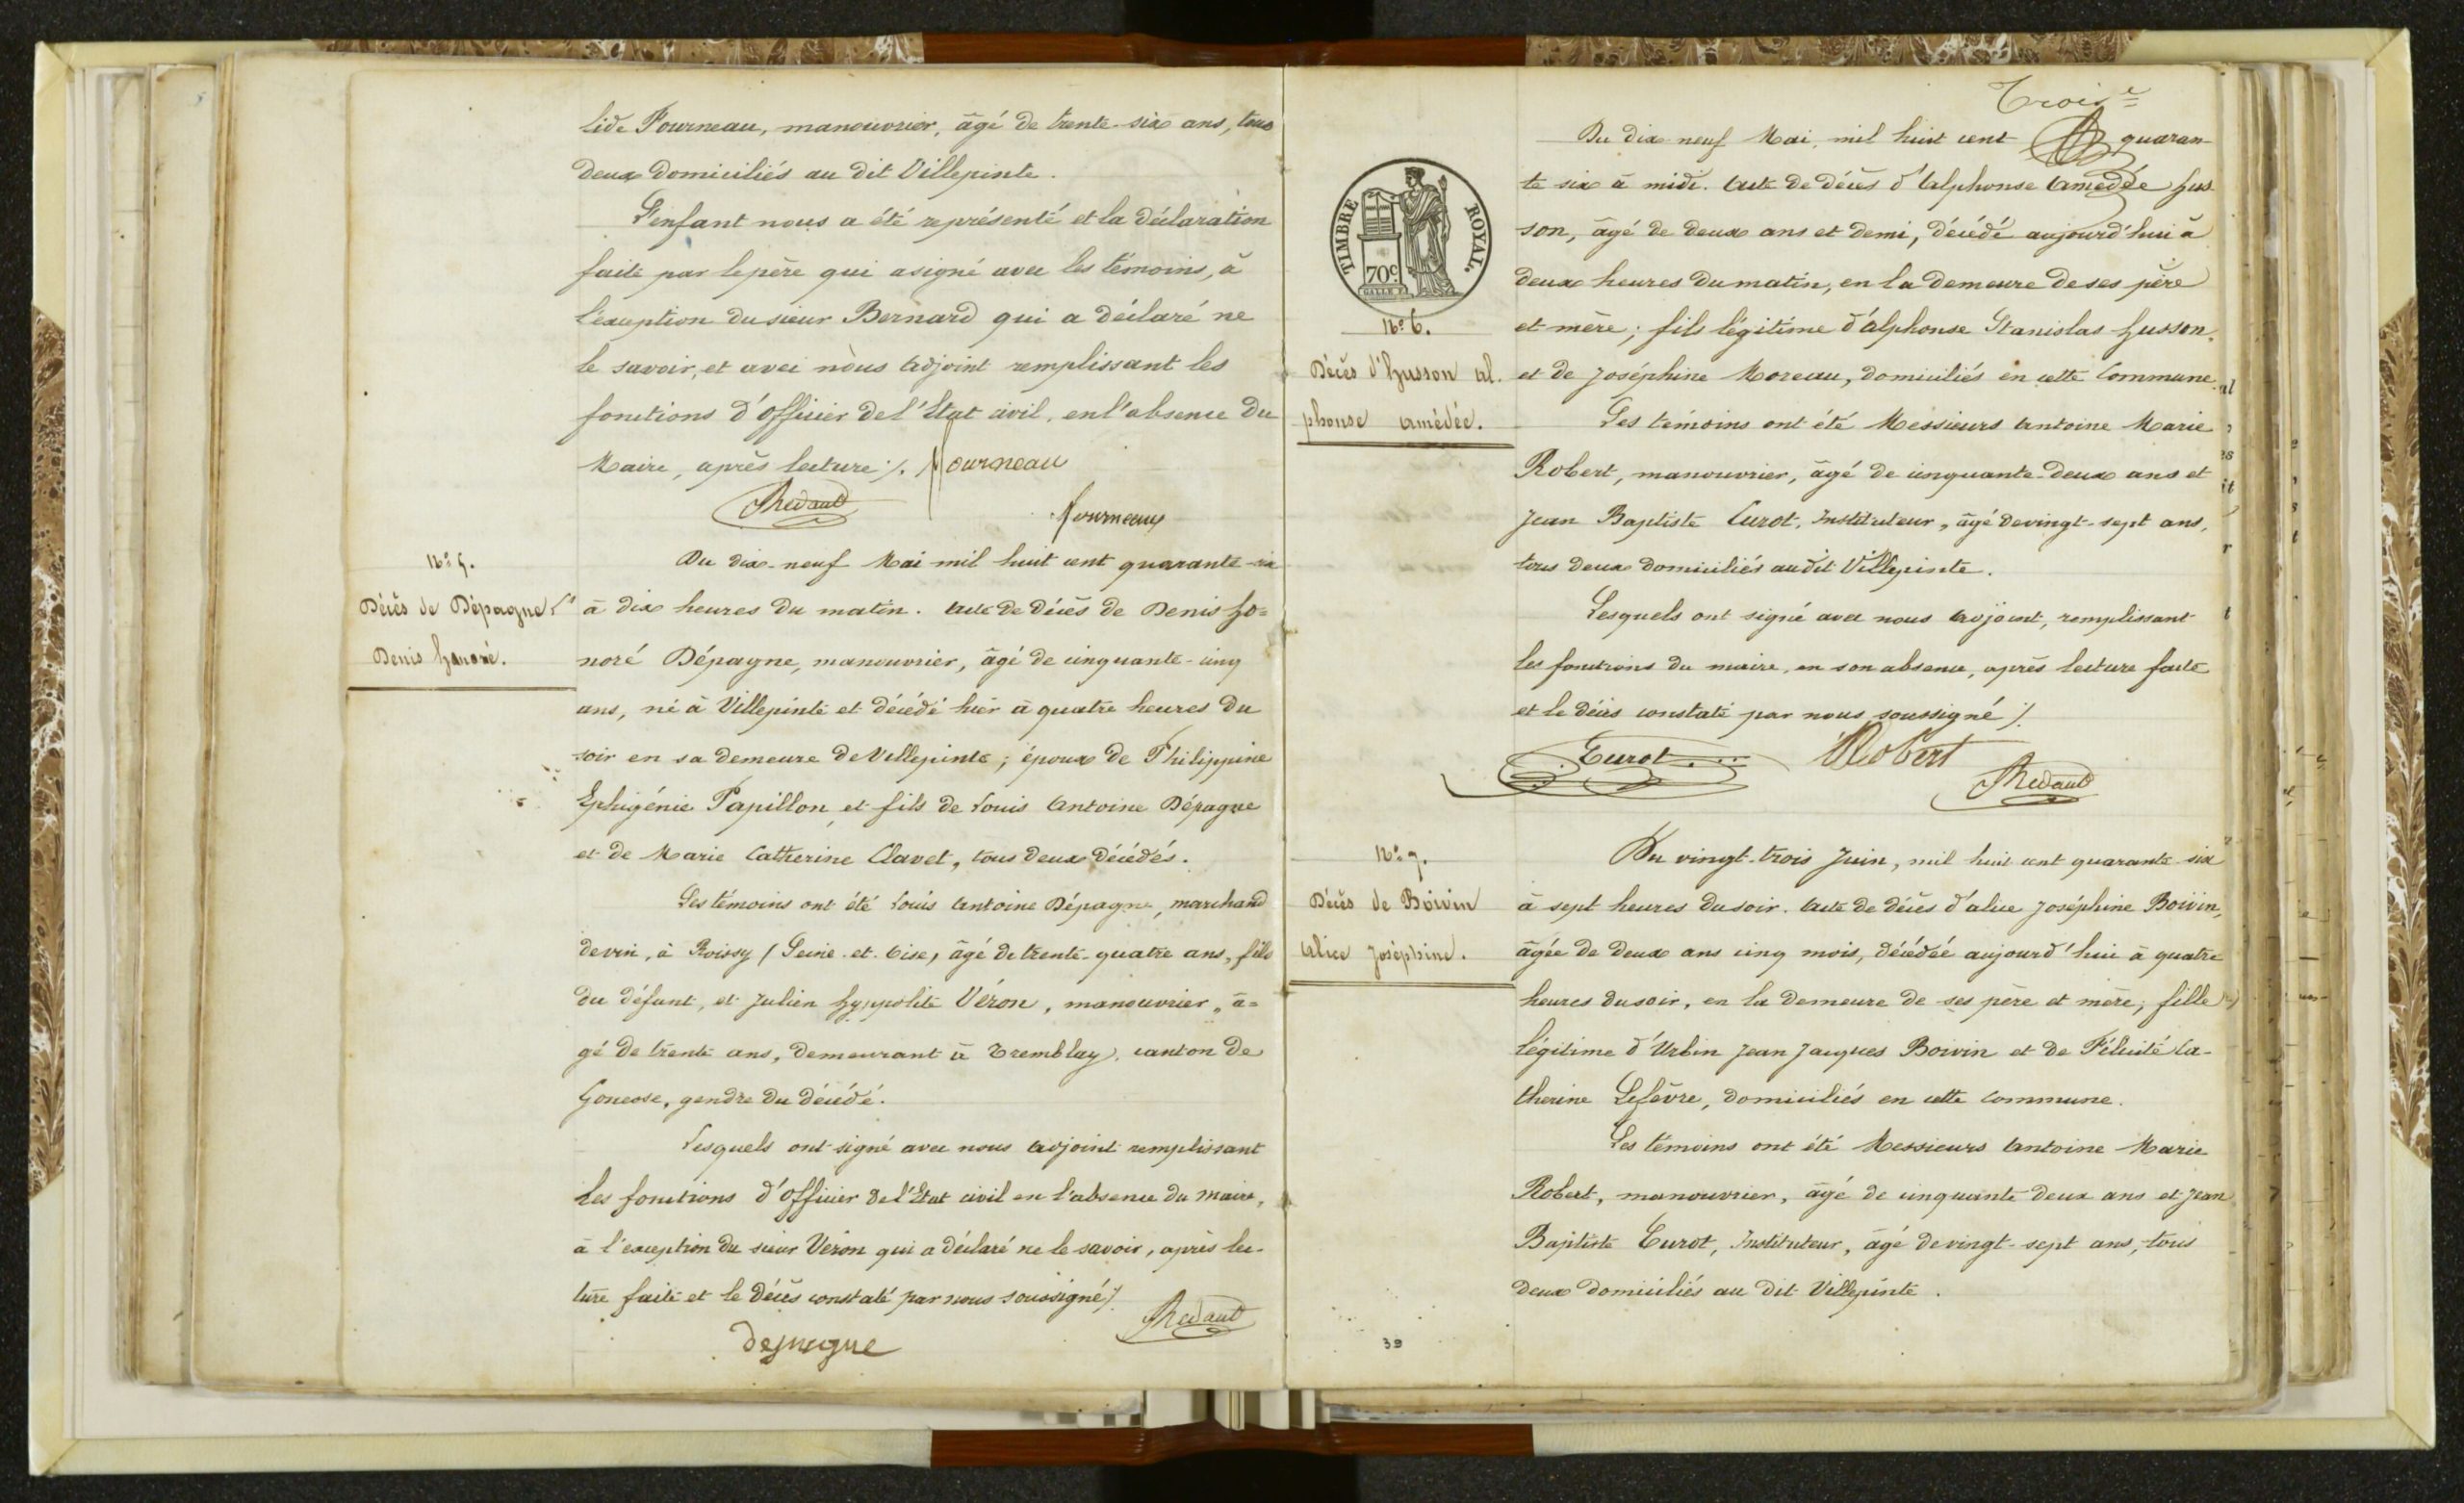 lide Fourneau, manouvrier, âgé de trente-six ans, tous
deux domiciliés au dit Villepinte.
L'enfant nous a été représenté et la déclaration
faite par le père qui a signé avec les témoins, à
l'exception du sieur Bernard qui a déclaré ne
le savoir, et avec nous adjoint remplissant les
fonctions d'officier de l'Etat civil, en l'absence du
Maire, après lecture ./. fourneau
Redaut
fourneaux
No. 5.
Décès de Dépagne
Denis Honoré.
Du dix-neuf Mai mil huit cent quarante-six
à dix heures du matin. Acte de décès de Denis Ho=
noré Dépagne, manouvrier, âgé de cinquante-cinq
ans, né à Villepinte et décédé hier à quatre heures du
soir en sa demeure de Villepinte; époux de Philippine
Ephigénie Papillon et fils de Louis Antoine Dépagne
et de Marie Catherine Clavet, tous deux décédés.
Les témoins ont été Louis Antoine Dépagne, marchand
de vin, à Roissy (Seine-et-Oise) âgé de trente-quatre ans, fils
du défunt, et Julien Hyppolite Véron, manouvrier, â=
gé de trente ans, demeurant à Tremblay, canton de
Gonesse, gendre du décédé.
Lesquels ont signé avec nous adjoint remplissant
les fonctions d'officier de l'Etat civil en l'absence du maire,
à l'exception du sieur Véron qui a déclaré ne le savoir, après lec-
ture faite et le décès constaté par nous soussigné ./.
Redaut
depagne
Trois
TIMBRE ROYAL.
70c
No. 6.
Décès d'Husson Al-
phonse Amédée.
Du dix-neuf Mai, mil huit cent quaran-
te six à midi. Acte de décès d'Alphonse Amédée Hus-
son, âgé de deux ans et demi, décédé aujourd'hui à
deux heures du matin, en la demeure de ses père
et mère; fils légitime d'Alphonse Stanislas Husson,
et de Joséphine Moreau, domiciliés en cette Commune.
Les témoins ont été Messieurs Antoine Marie
Robert, manouvrier, âgé de cinquante-deux ans et
Jean Baptiste Curot, Instituteur, âgé de vingt-sept ans,
tous deux domiciliés au dit Villepinte.
Lesquels ont signé avec nous adjoint, remplissant
les fonctions du maire, en son absence, après lecture faite
et le décès constaté par nous soussigné ./.
Curot Robert
Redaut
No. 7.
Décès de Boivin
Alice Joséphine.
Du vingt-trois Juin, mil huit cent quarante-six
à sept heures du soir. Acte de décès d'Alice Joséphine Boivin,
âgée de deux ans cinq mois, décédée aujourd'hui à quatre
heures du soir, en la demeure de ses père et mère; fille
légitime d'Urbin Jean Jacques Boivin et de Félicité Ca-
therine Lefèvre, domiciliés en cette commune.
Les témoins ont été Messieurs Antoine Marie
Robert, manouvrier, âgé de cinquante deux ans et Jean
Baptiste Curot, Instituteur, âgé de vingt-sept ans, tous
deux domiciliés au dit Villepinte.
39